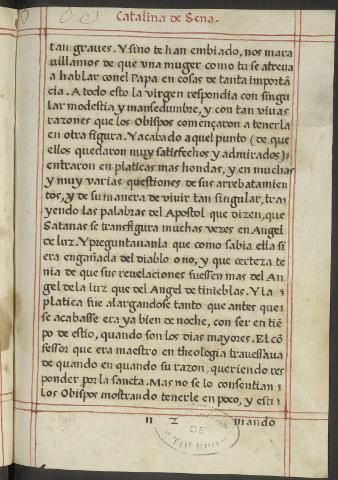 Catalina de Sena.
tan graves. Y sino te han embiado, nos mara
villamos de que vna muger como tu se atreva
a hablar con el Papa en cosas de tanta importã
cia. A todo esto la virgen respondia con singu
lar modestia y mansedumbre, y con tan vivas
razones que los Obispos començaron a tenerla
en otra figura. Y acabado aquel punto (de que
ellos quedaron muy satisfechos y admirados)
entraron en platicas mas hondas, y en muchas
y muy varias questiones de sus arrebatamien
tos, y de su manera de vivir tan singular, tra
yendo las palabras del Apostol que dizen, que
Satanas se transfigura muchas vezes en Angel
de luz. Y preguntavanla que como sabia ella si
era engañada del diablo o no, y que certeza te
nia de que sus revelaciones fuessen mas del An
gel de la luz que del Angel de tinieblas. Y la
platica fue alargandose tanto que antes que
se acabasse era ya bien de noche, con ser en tiẽ
po de estio, quando son los dias mayores. El cõ
fessor que era maestro en theologia travessava
de quando en quando su razon, queriendo res
ponder por la sancta. Mas no se lo consentian
los Obispos mostrando tenerle en poco, y esti
n 2 mando
DE
TOLEDO